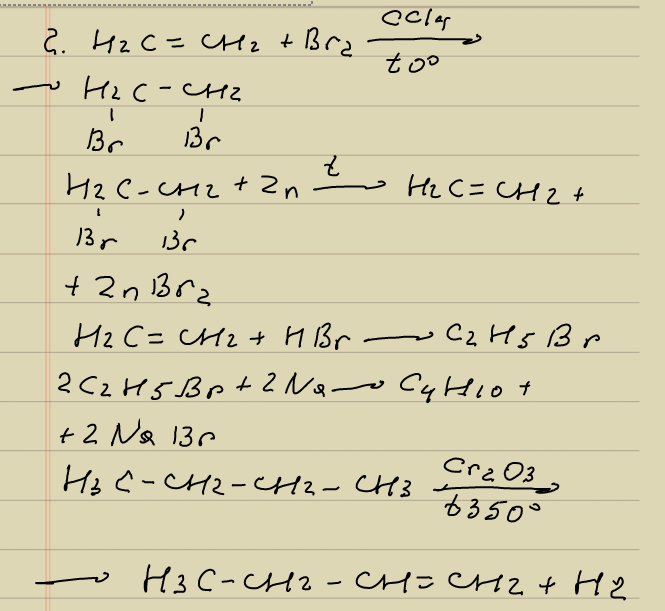 2. H2C = CH2 + Br2 CCl4 t0° →
→ H2C - CH2
Br Br
H2C-CH2 + Zn t → H2C=CH2 +
Br Br
+ ZnBr2
H2C=CH2 + HBr → C2H5Br
2C2H5Br + 2Na → C4H10 +
+ 2NaBr
H3C-CH2-CH2-CH3 Cr2O3 t350° →
→ H3C-CH2-CH=CH2 + H2